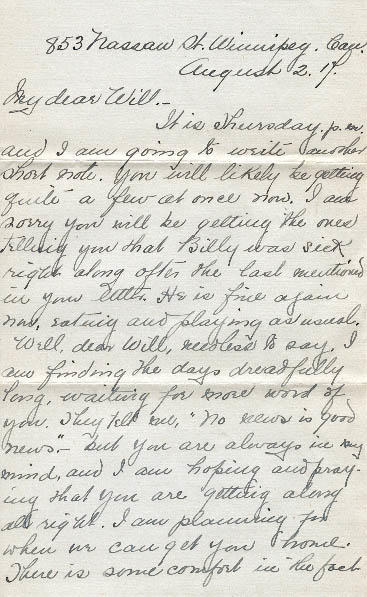 853 Nassau St. Winnipeg. Can.
August 2. 17.
My dear Will.–
It is Thursday. p.m.
and I am going to write another
short note. You will likely be getting
quite a few at once now. I am
sorry you will be getting the ones
telling you that Billy was sick
right along after the last mentioned
in your letter. He is fine again
now, eating and playing as usual.
Well, dear Will, needless to say, I
am finding the days dreadfully
long, waiting for more word of
you. They tell me, "No news is good
news"– but you are always in my
mind, and I am hoping and pray-
ing that you are getting along
all right. I am planning for
when we can get you home.
There is some comfort in the fact